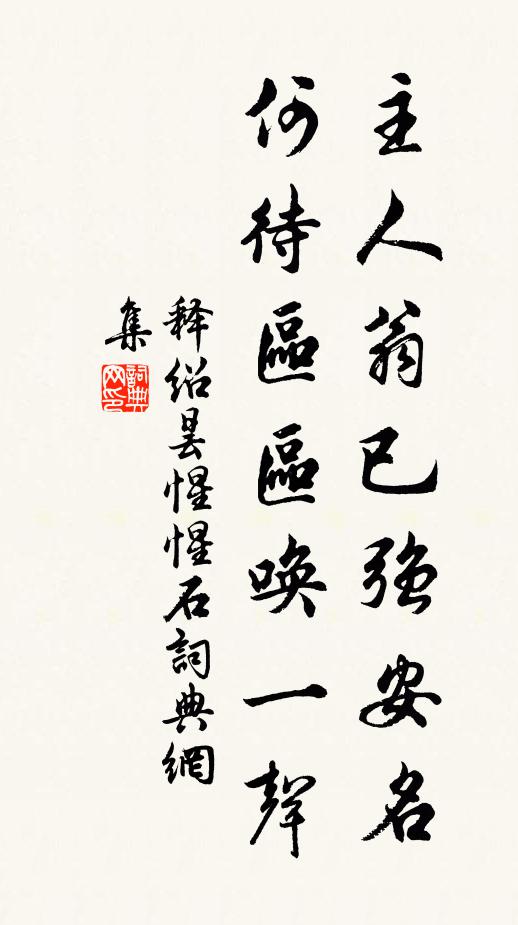 主人翁已強安名
何待區區喚一聲
释绍昙惺惺石詞典網
集
詞典网印